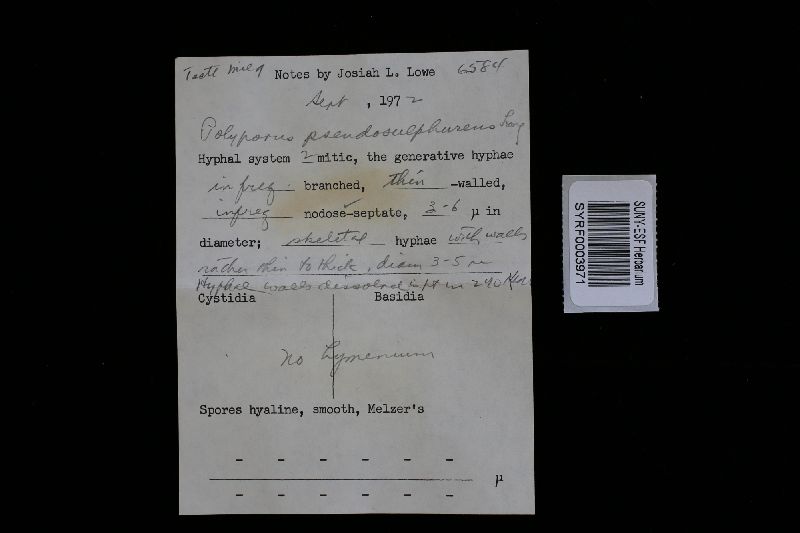 Taste mild Notes by Josiah L. Lowe 6584
Sept , 1972
Polyporus pseudosulphureus Long
Hyphal system 2 mitic, the generative hyphae
infreq. branched, thin -walled,
infreq nodose-septate, 3-6 µ in
diameter; skeletal hyphae with walls
rather thin to thick, diam 3-5 µ
Hyphal walls dissolved in 2% KOH
Cystidia Basidia
no hymenium
Spores hyaline, smooth, Melzer's
- - - - - -
µ
- - - - - -
SUNY-ESF Herbarium
SYRF0003971